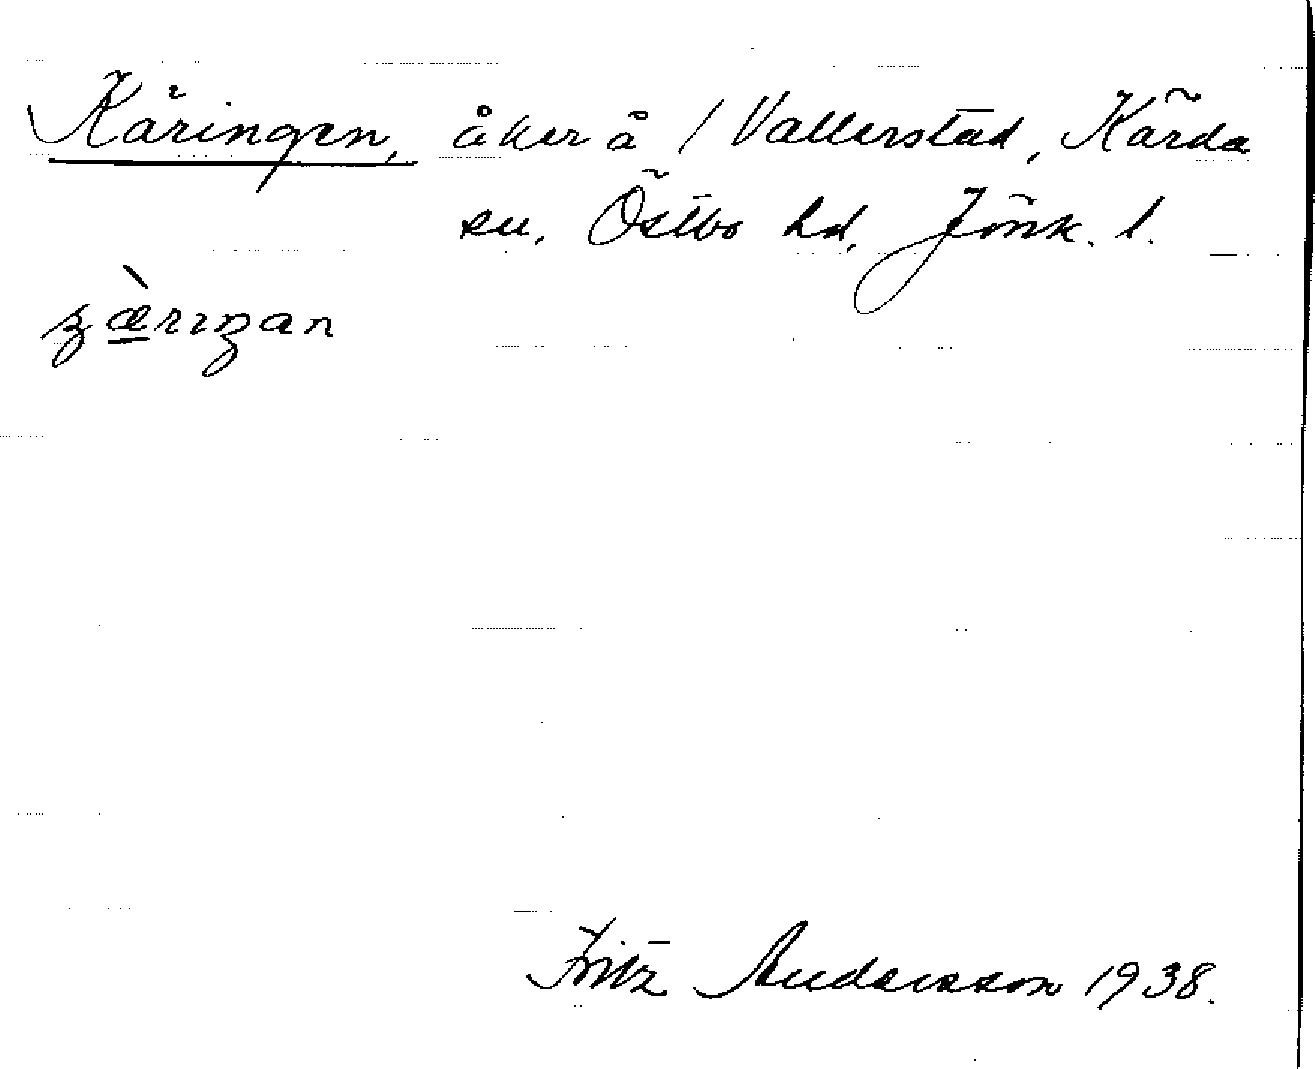 Käringen, åker å / Vallerstad, Kärda
sn, Östbo hd, Jönk. l.
Fritz Andersson 1938.